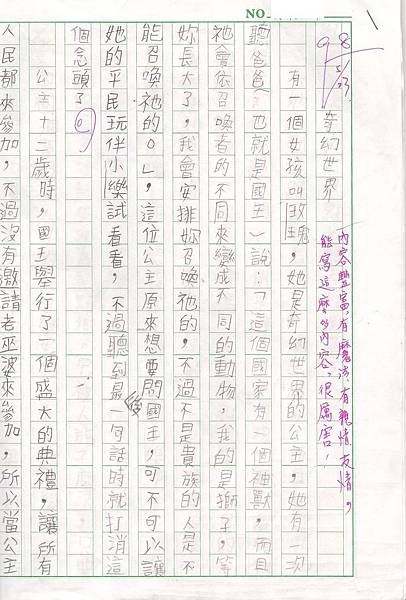 NO.
98 5/23
奇幻世界
內容豐富,有魔法,有親情、友情,
能寫這麼多內容,很厲害!
有一個女孩叫玫瑰,她是奇幻世界的公主,她有一次
聽爸爸(也就是國王)說:「這個國家有一個神獸,而且
祂會依召喚者的不同來變成不同的動物,我的是獅子,等
妳長大了,我會安排妳召喚祂的,不過不是貴族的人是不
能召喚祂的。」,這位公主原來想要問國王,可不可以讓
她的平民玩伴小樂試看看,不過聽到最後一句話時就打消這
個念頭了。
公主十二歲時,國王舉行了一個盛大的典禮,讓所有
人民都來參加,不過沒有邀請老巫婆來參加,所以當公主